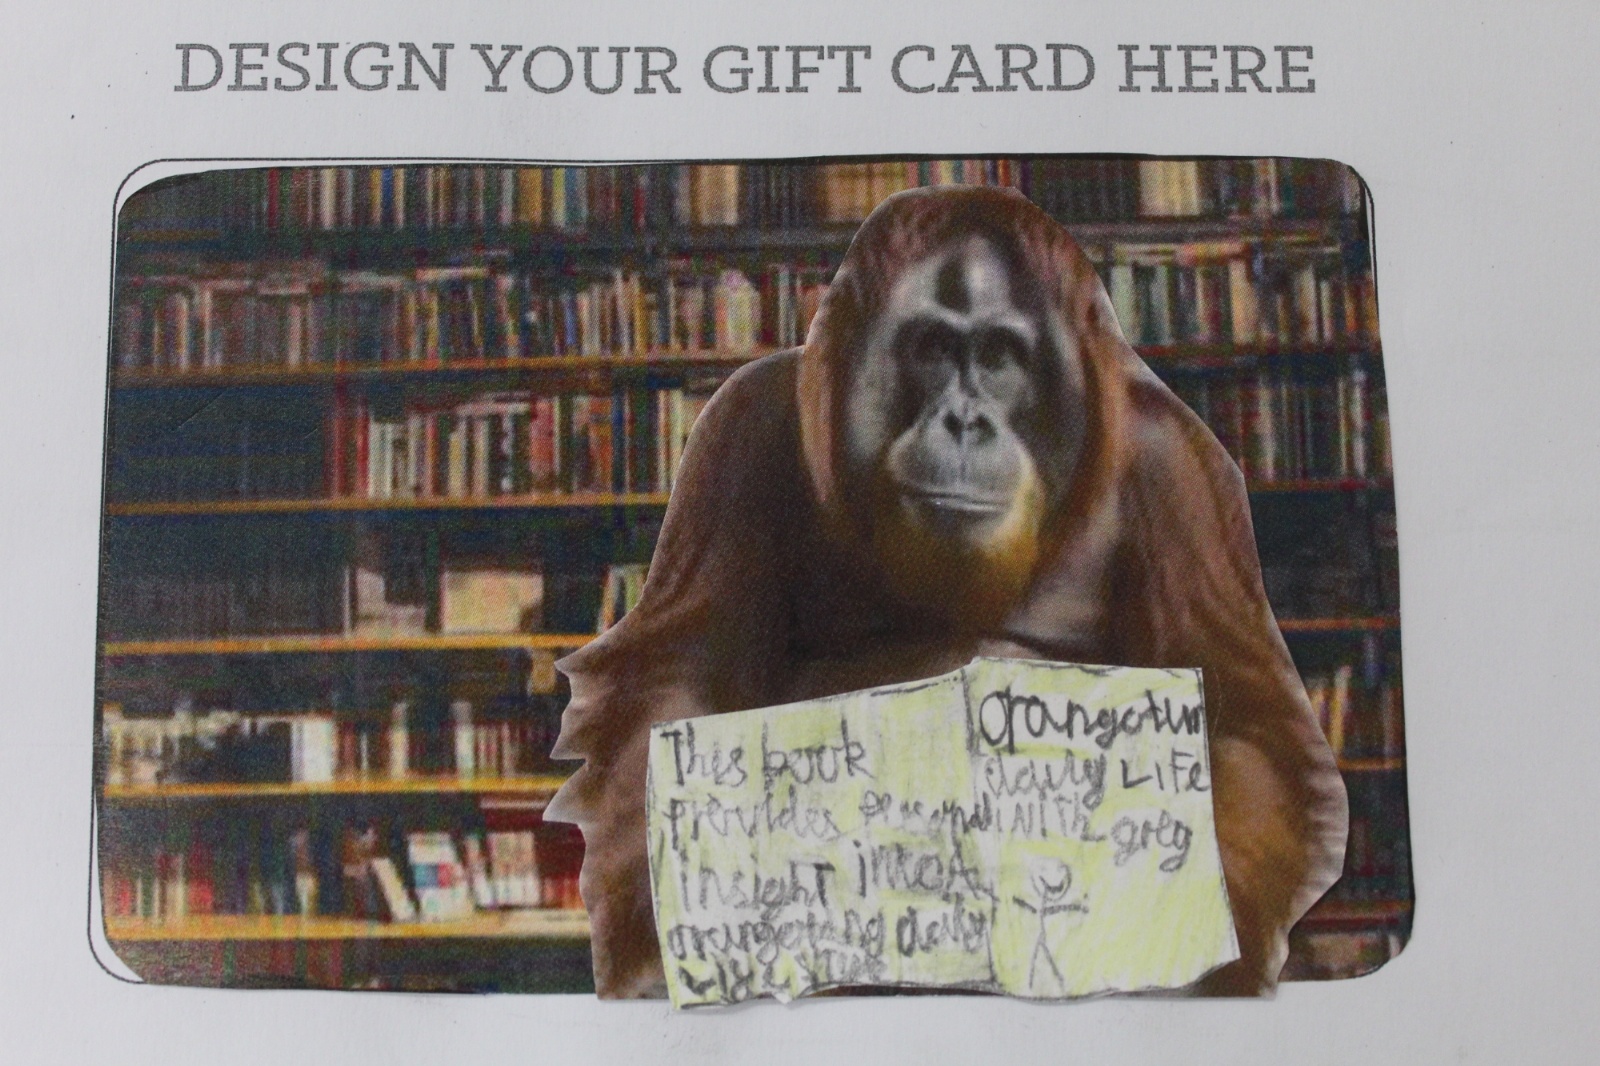 DESIGN YOUR GIFT CARD HERE
This book
provides personal
insight into a
orangotang daily
life style
Orangotun
daily LiFe
WITh greg